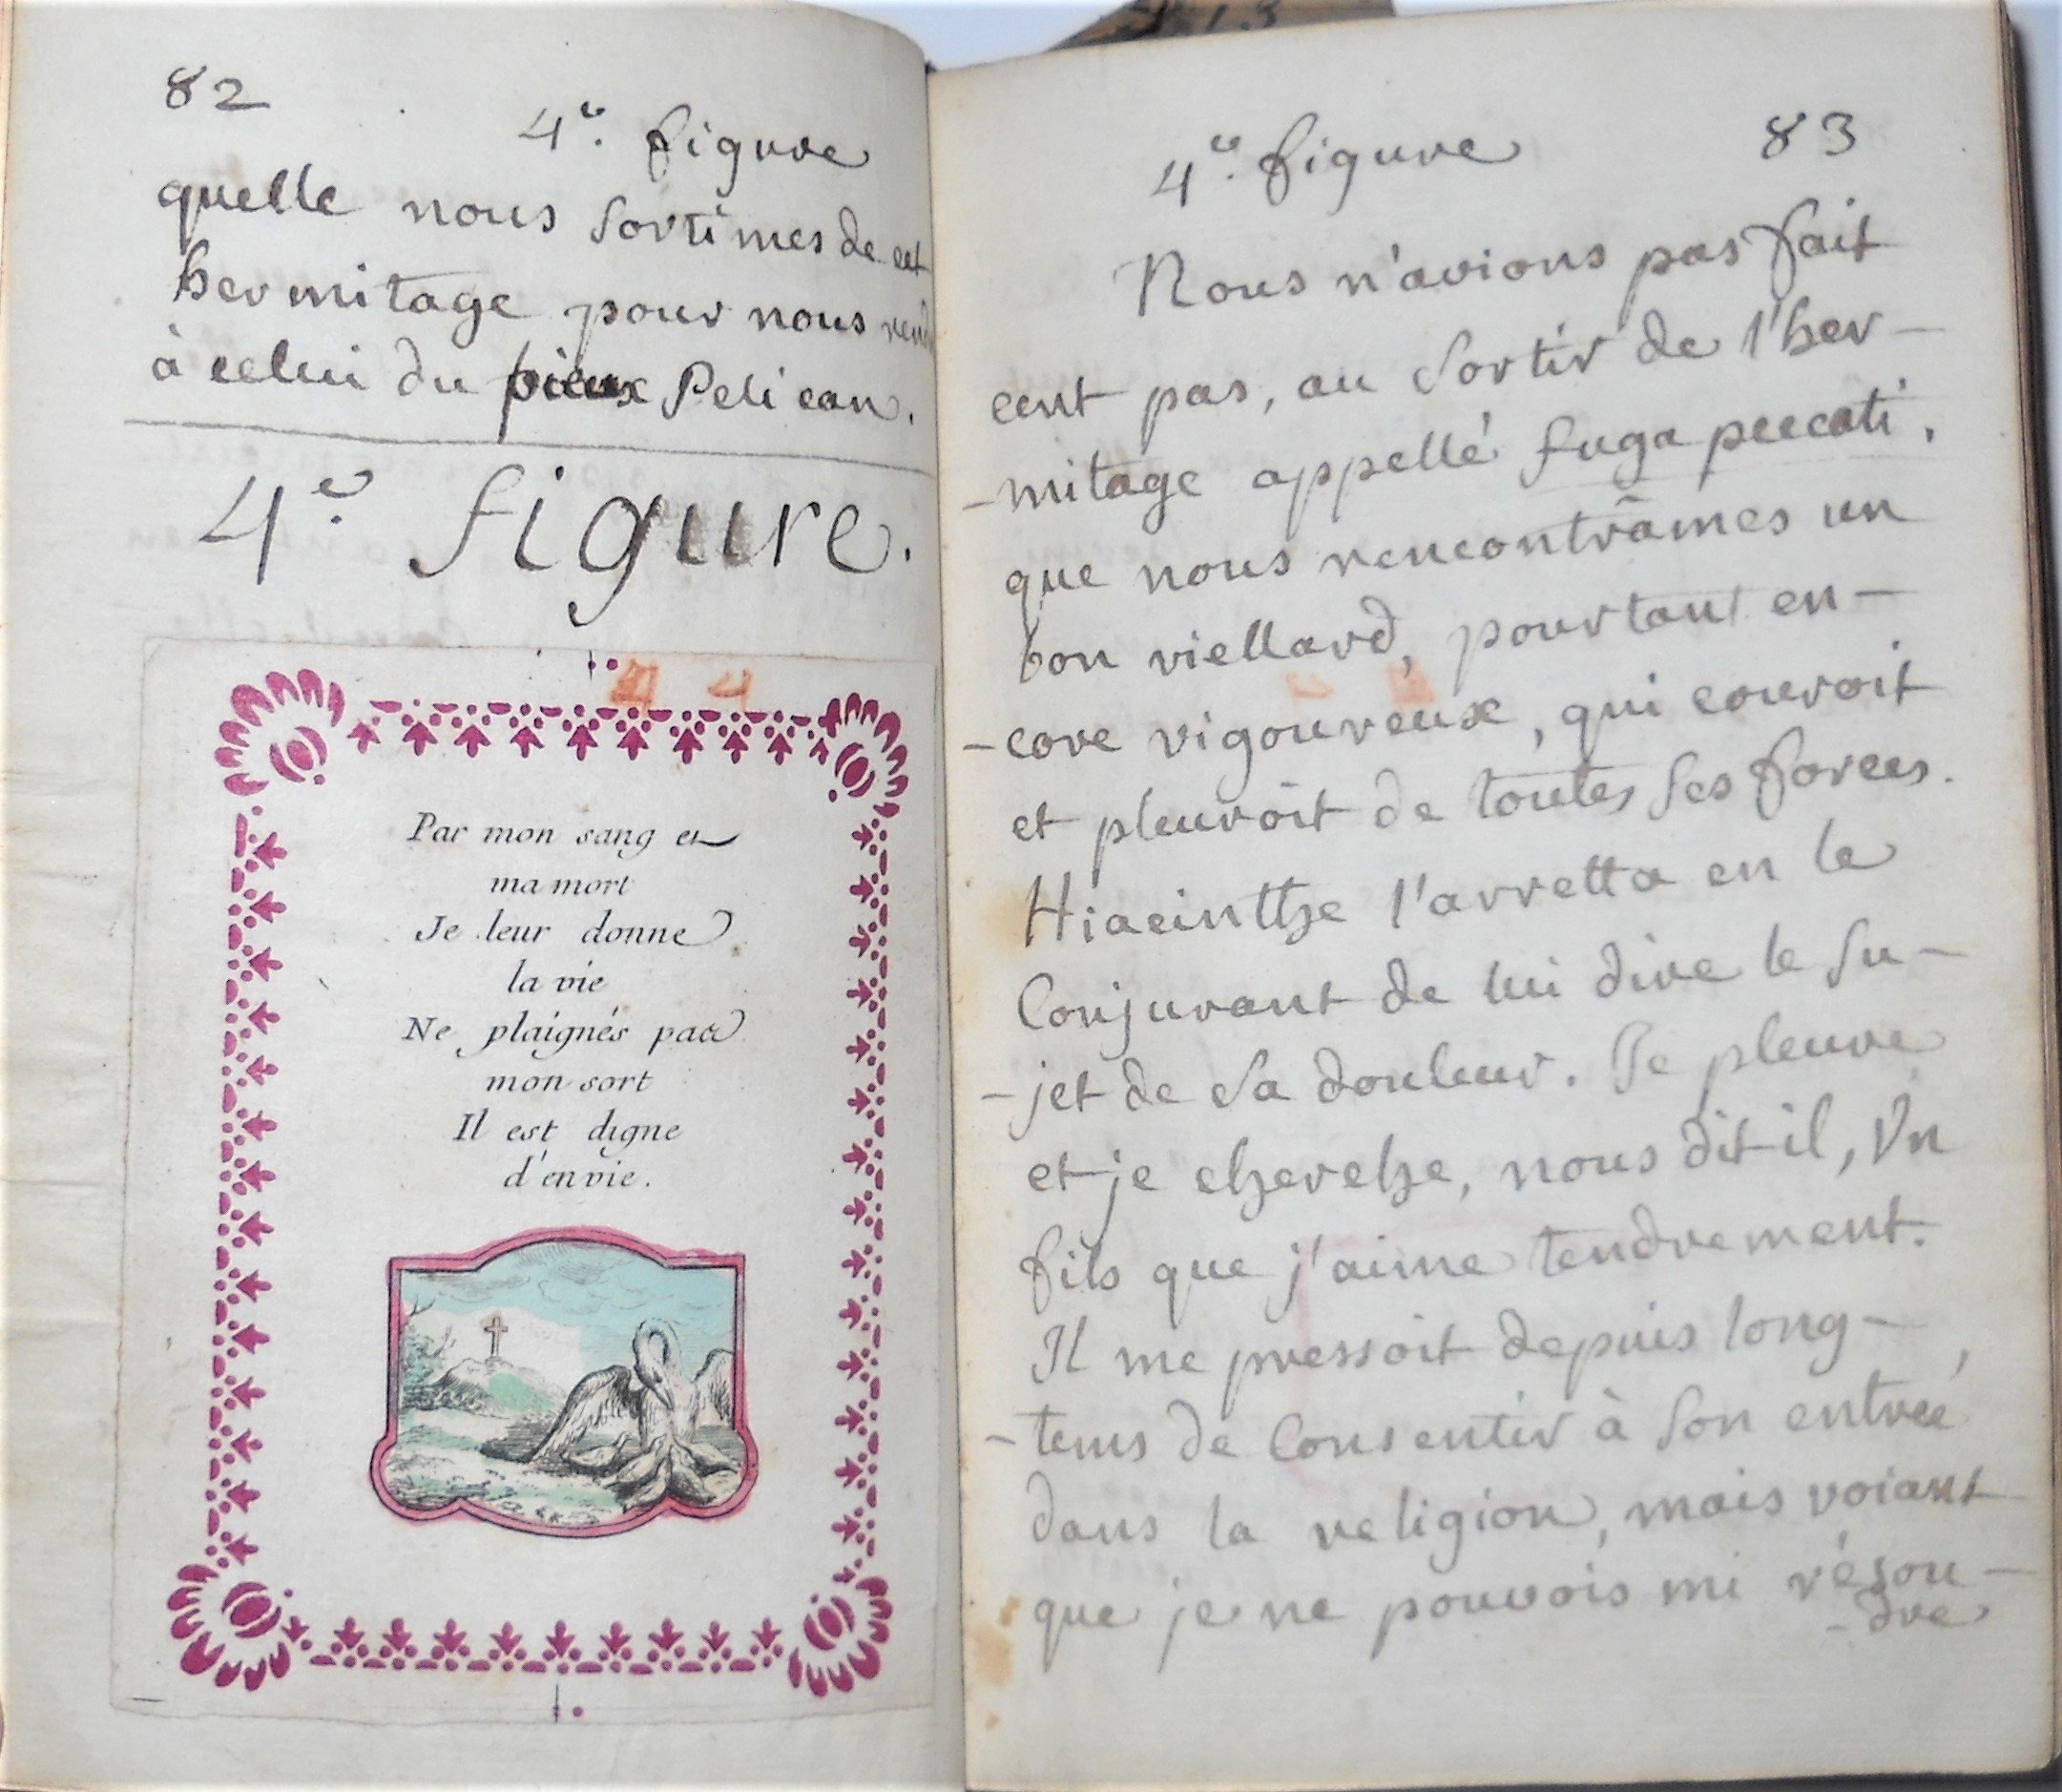 82
4e. figure
quelle nous sortimes de cet
hermitage pour nous rend
à celui du pieux Pelican.
4e. figure.
4 4
Par mon sang et
ma mort
Je leur donne
la vie
Ne plaignés pas
mon sort
Il est digne
d'envie.
83
4e. figure
Nous n'avions pas fait
cent pas, au sortir de l'her-
-mitage appellé fuga peccati,
que nous rencontrâmes un
bon viellard, pourtant en-
-core vigoureux, qui couroit
et pleuroit de toutes ses forces.
Hiacinthe l'arretta en le
Conjurant de lui dire le su-
-jet de sa douleur. Je pleure
et je cherche, nous dit-il, Un
fils que j'aime tendrement.
Il me pressoit depuis long-
-tems de Consentir à son entrée
dans la religion, mais voiant
que je ne pouvois mi résou-
-dre